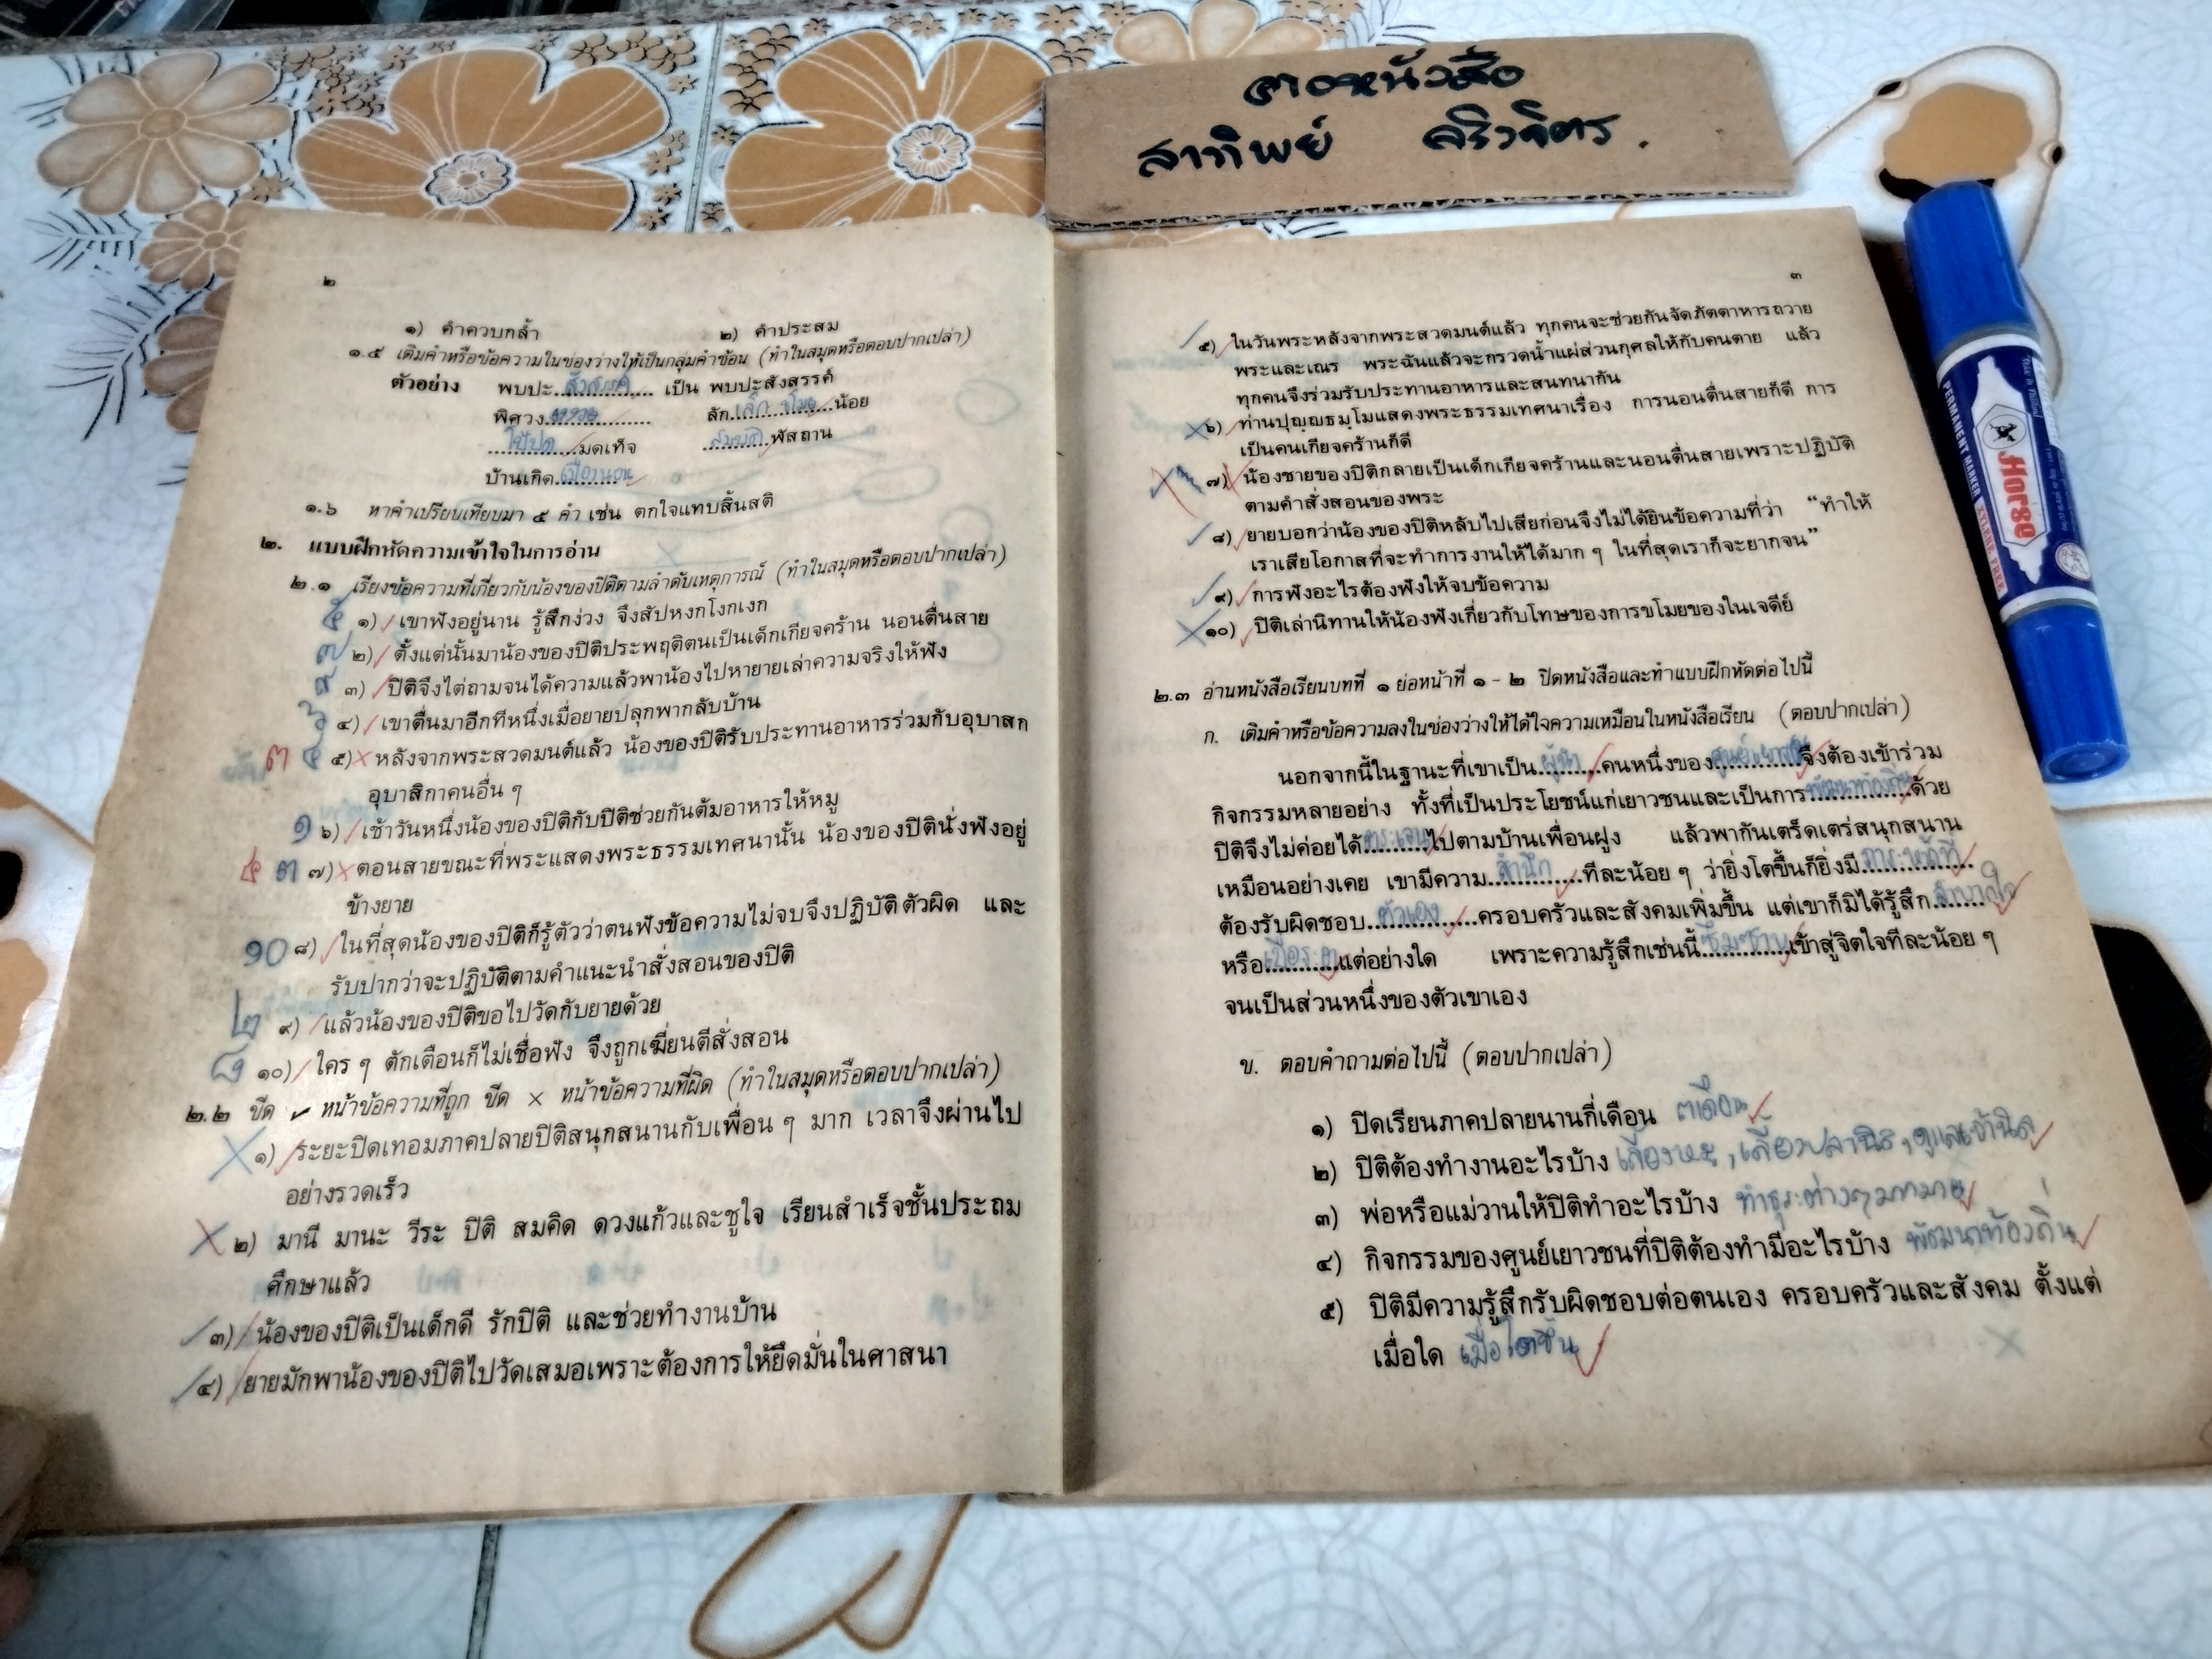 สาทิพย์ ศริวจิตร.
๒
๑) คำควบกล้ำ ๒) คำประสม
๑.๕ เติมคำหรือข้อความในช่องว่างให้เป็นกลุ่มคำซ้อน (ทำในสมุดหรือตอบปากเปล่า)
ตัวอย่าง พบปะ..สังสรรค์.... เป็น พบปะสังสรรค์
พิศวง............ ลัก เล็ก ขโมย...น้อย
.............มดเท็จ สมบัติ พัสถาน
บ้านเกิด เมืองนอน
๑.๖ หาคำเปรียบเทียบมา ๕ คำ เช่น ตกใจแทบสิ้นสติ
๒. แบบฝึกหัดความเข้าใจในการอ่าน
๒.๑ เรียงข้อความที่เกี่ยวกับน้องของปิติตามลำดับเหตุการณ์ (ทำในสมุดหรือตอบปากเปล่า)
๕ ๑) เขาฟังอยู่นาน รู้สึกง่วง จึงสัปหงกโงกเงก
๗ ๒) ตั้งแต่นั้นมาน้องของปิติประพฤติตนเป็นเด็กเกียจคร้าน นอนตื่นสาย
๙ ๓) ปิติจึงไต่ถามจนได้ความแล้วพาน้องไปหายายเล่าความจริงให้ฟัง
๖ ๔) เขาตื่นมาอีกทีหนึ่งเมื่อยายปลุกพากลับบ้าน
๓ ๔ ๕) × หลังจากพระสวดมนต์แล้ว น้องของปิติรับประทานอาหารร่วมกับอุบาสก
อุบาสิกาคนอื่น ๆ
๑ ๖) เช้าวันหนึ่งน้องของปิติกับปิติช่วยกันต้มอาหารให้หมู
๔ ๓ ๗) × ตอนสายขณะที่พระแสดงพระธรรมเทศนานั้น น้องของปิตินั่งฟังอยู่
ข้างยาย
๑๐ ๘) ในที่สุดน้องของปิติก็รู้ตัวว่าตนฟังข้อความไม่จบจึงปฏิบัติตัวผิด และ
รับปากว่าจะปฏิบัติตามคำแนะนำสั่งสอนของปิติ
๒ ๙) แล้วน้องของปิติขอไปวัดกับยายด้วย
๘ ๑๐) ใคร ๆ ตักเตือนก็ไม่เชื่อฟัง จึงถูกเฆี่ยนตีสั่งสอน
๒.๒ ขีด ✓ หน้าข้อความที่ถูก ขีด × หน้าข้อความที่ผิด (ทำในสมุดหรือตอบปากเปล่า)
× ๑) ระยะปิดเทอมภาคปลายปิติสนุกสนานกับเพื่อน ๆ มาก เวลาจึงผ่านไป
อย่างรวดเร็ว
× ๒) มานี มานะ วีระ ปิติ สมคิด ดวงแก้วและชูใจ เรียนสำเร็จชั้นประถม
ศึกษาแล้ว
✓ ๓) น้องของปิติเป็นเด็กดี รักปิติ และช่วยทำงานบ้าน
✓ ๔) ยายมักพาน้องของปิติไปวัดเสมอเพราะต้องการให้ยึดมั่นในศาสนา
๓
✓ ๕) ในวันพระหลังจากพระสวดมนต์แล้ว ทุกคนจะช่วยกันจัดภัตตาหารถวาย
พระและเณร พระฉันแล้วจะกรวดน้ำแผ่ส่วนกุศลให้กับคนตาย แล้ว
ทุกคนจึงร่วมรับประทานอาหารและสนทนากัน
× ๖) ท่านปุญฺญธมฺโมแสดงพระธรรมเทศนาเรื่อง การนอนตื่นสายก็ดี การ
เป็นคนเกียจคร้านก็ดี
๗) น้องชายของปิติกลายเป็นเด็กเกียจคร้านและนอนตื่นสายเพราะปฏิบัติ
ตามคำสั่งสอนของพระ
✓ ๘) ยายบอกว่าน้องของปิติหลับไปเสียก่อนจึงไม่ได้ยินข้อความที่ว่า “ทำให้
เราเสียโอกาสที่จะทำการงานให้ได้มาก ๆ ในที่สุดเราก็จะยากจน”
✓ ๙) การฟังอะไรต้องฟังให้จบข้อความ
× ๑๐) ปิติเล่านิทานให้น้องฟังเกี่ยวกับโทษของการขโมยของในเจดีย์
๒.๓ อ่านหนังสือเรียนบทที่ ๑ ย่อหน้าที่ ๑ - ๒ ปิดหนังสือและทำแบบฝึกหัดต่อไปนี้
ก. เติมคำหรือข้อความลงในช่องว่างให้ได้ใจความเหมือนในหนังสือเรียน (ตอบปากเปล่า)
นอกจากนี้ในฐานะที่เขาเป็น ผู้นำ คนหนึ่งของ ศูนย์เยาวชน จึงต้องเข้าร่วม
กิจกรรมหลายอย่าง ทั้งที่เป็นประโยชน์แก่เยาวชนและเป็นการ พัฒนาท้องถิ่น ด้วย
ปิติจึงไม่ค่อยได้ ตระเวน ไปตามบ้านเพื่อนฝูง แล้วพากันเตร็ดเตร่สนุกสนาน
เหมือนอย่างเคย เขามีความ สำนึก ทีละน้อย ๆ ว่ายิ่งโตขึ้นก็ยิ่งมี ภาระหน้าที่
ต้องรับผิดชอบ ตัวเอง ครอบครัวและสังคมเพิ่มขึ้น แต่เขาก็มิได้รู้สึก ลำบากใจ
หรือ............แต่อย่างใด เพราะความรู้สึกเช่นนี้ ซึมซาบ เข้าสู่จิตใจทีละน้อย ๆ
จนเป็นส่วนหนึ่งของตัวเขาเอง
ข. ตอบคำถามต่อไปนี้ (ตอบปากเปล่า)
๑) ปิดเรียนภาคปลายนานกี่เดือน ๓เดือน
๒) ปิติต้องทำงานอะไรบ้าง เลี้ยงหมู, เลี้ยงปลานิล, ดูแลเจ้านิล
๓) พ่อหรือแม่วานให้ปิติทำอะไรบ้าง ทำธุระต่างๆมากมาย
๔) กิจกรรมของศูนย์เยาวชนที่ปิติต้องทำมีอะไรบ้าง พัฒนาท้องถิ่น
๕) ปิติมีความรู้สึกรับผิดชอบต่อตนเอง ครอบครัวและสังคม ตั้งแต่
เมื่อใด เมื่อโตขึ้น
Horse
PERMANENT MARKER XYLENE FREE